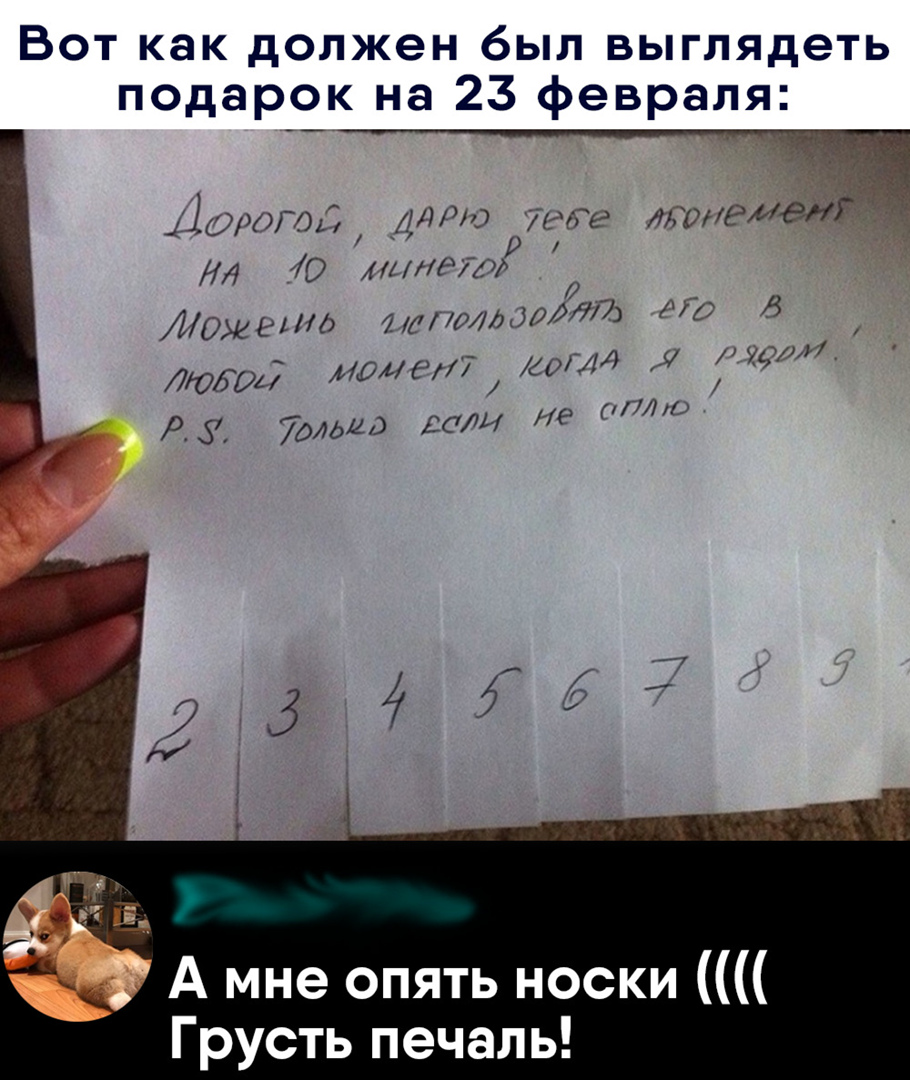 Вот как должен был выглядеть
подарок на 23 февраля:
Дорогой, дарю тебе абонемент
на 10 минетов!
Можешь использовать его в
любой момент, когда я рядом!
P.S. Только если не сплю!
2 3 4 5 6 7 8 9
А мне опять носки ((((
Грусть печаль!